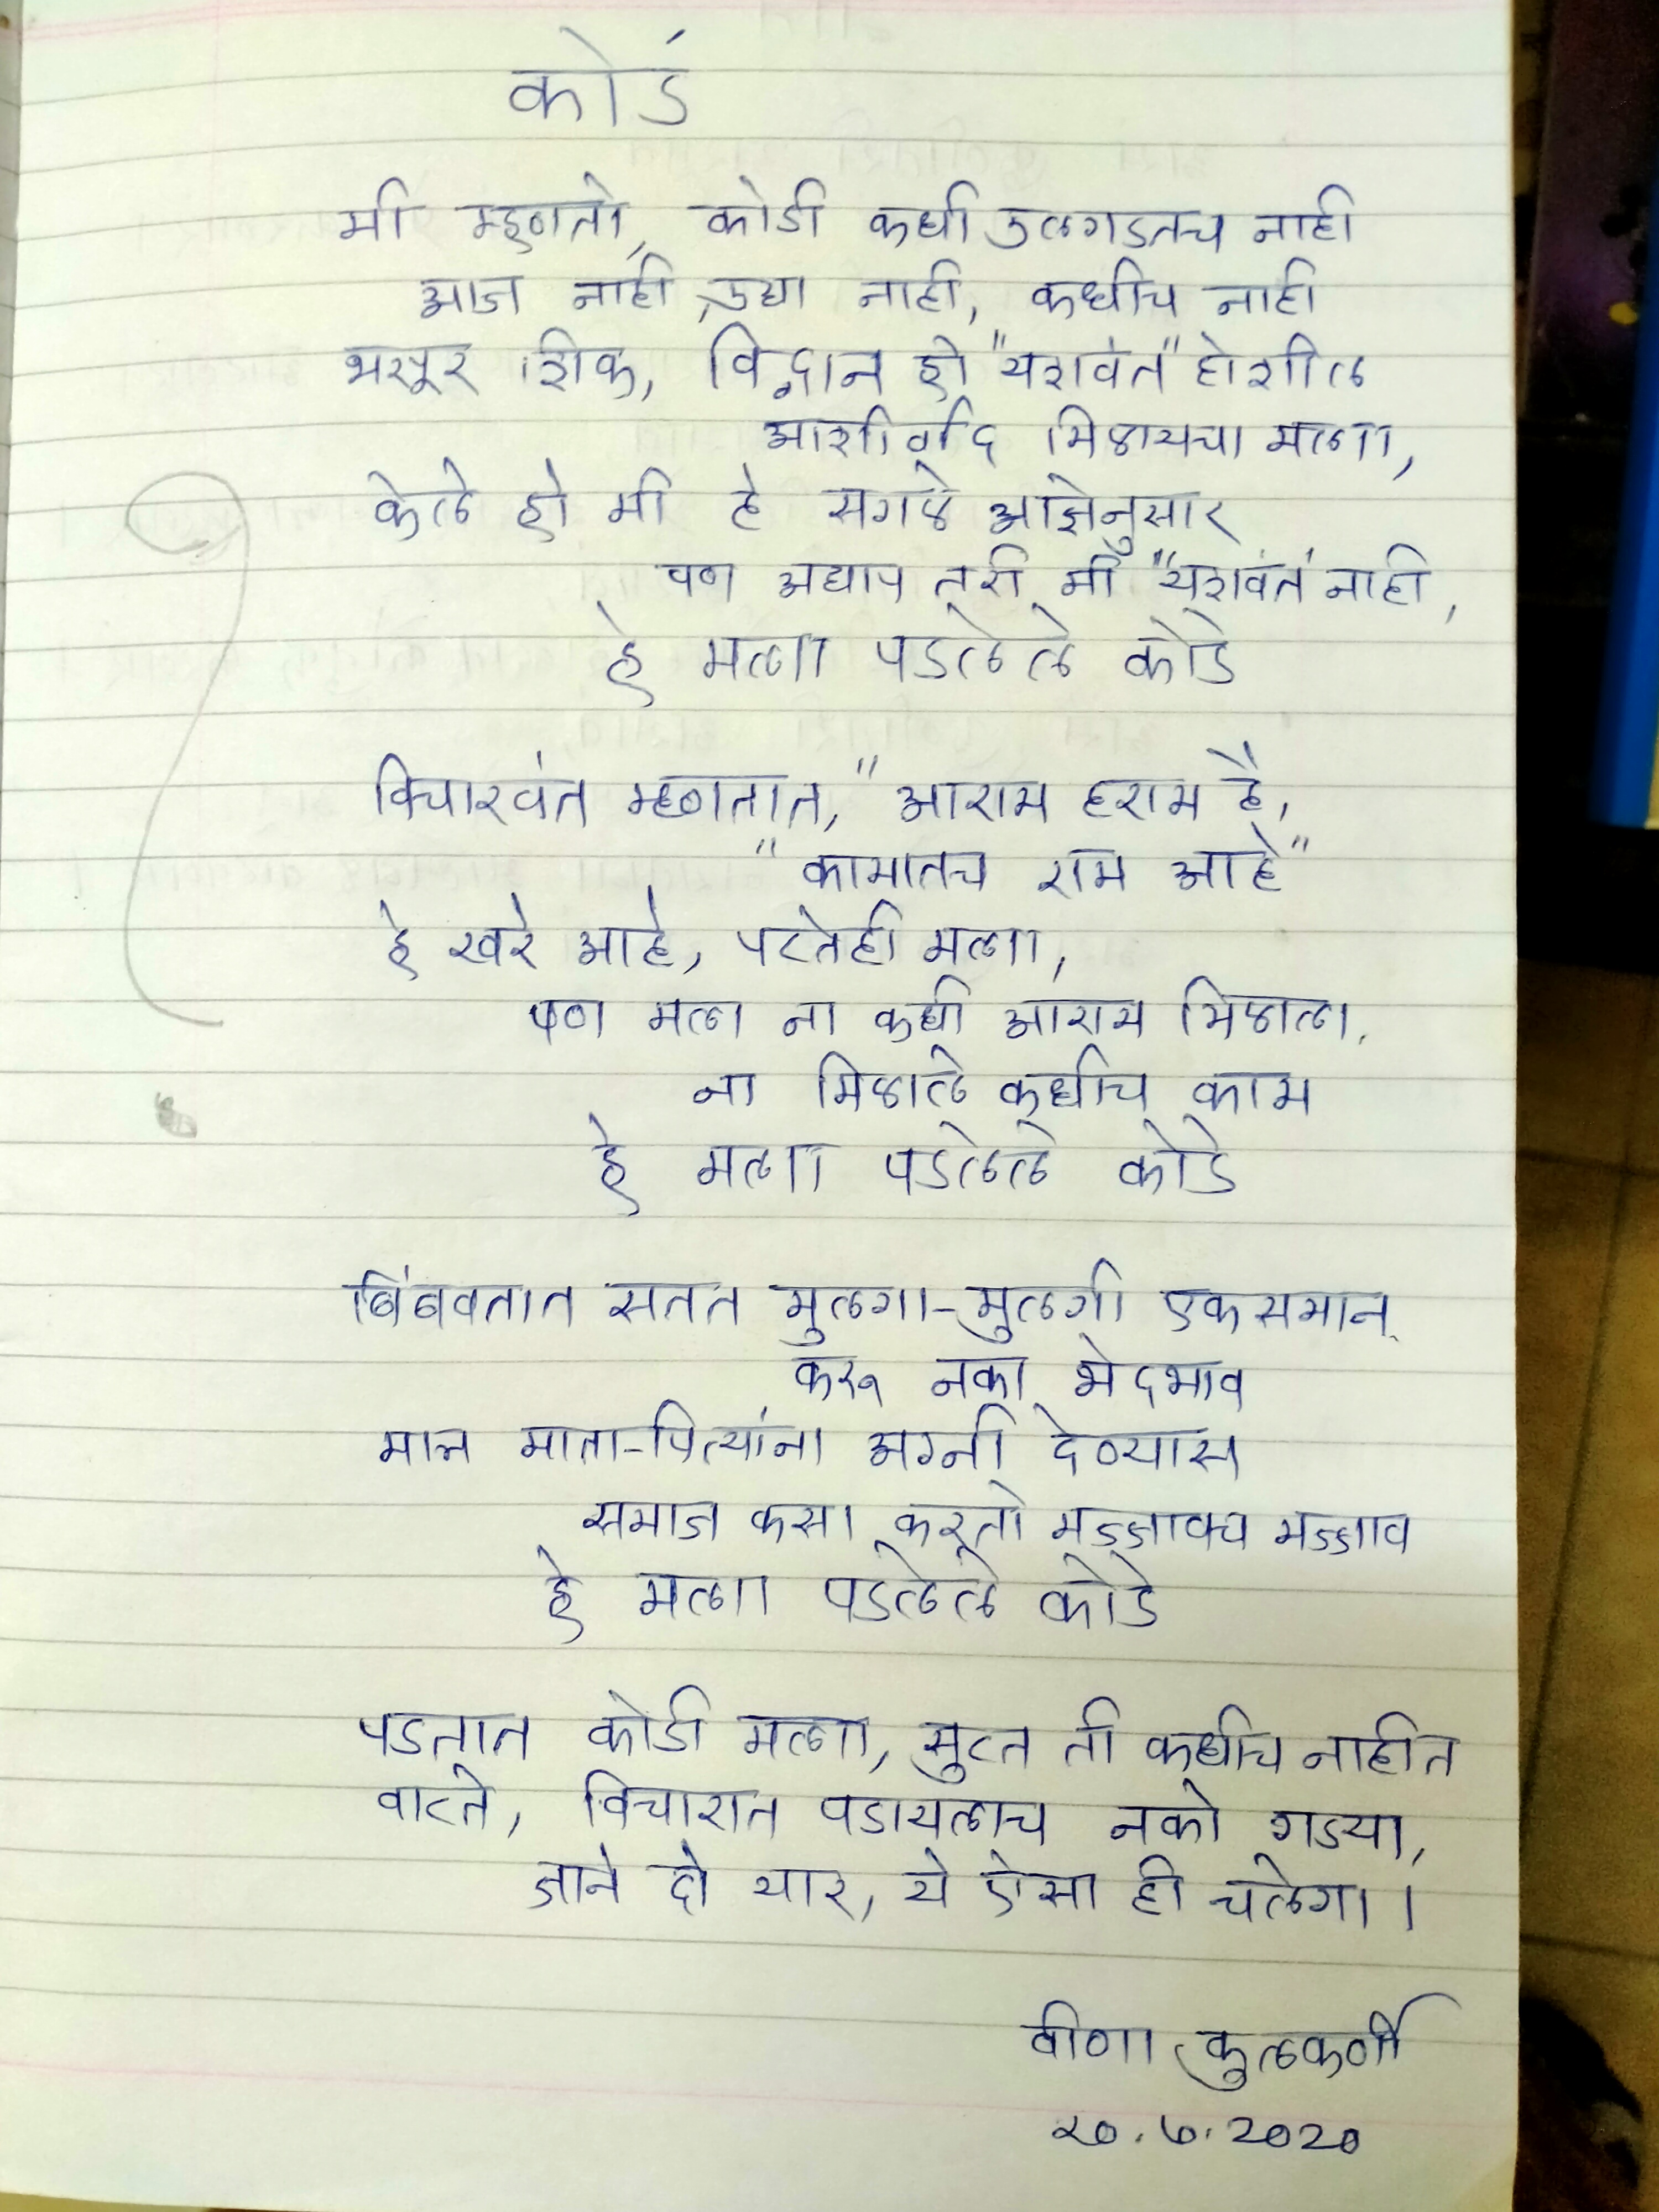 कोडं
मी म्हणतो, कोडी कधी उलगडतच नाही
आज नाही, उद्या नाही, कधीच नाही
भरपूर शिक, विद्वान हो "यशवंत" होशील
आशीर्वाद मिळायचा मला,
केले हो मी हे सगळे आज्ञेनुसार
पण अद्याप तरी मी "यशवंत" नाही,
हे मला पडलेले कोडे
विचारवंत म्हणतात, "आराम हराम है,
"कामातच राम आहे"
हे खरे आहे, पटतेही मला,
पण मला ना कधी आराम मिळाला.
ना मिळाले कधीच काम
हे मला पडलेले कोडे
बिंबवतात सतत मुलगा-मुलगी एकसमान
करू नका भेदभाव
मात्र माता-पित्यांना अग्नी देण्यास
समाज कसा करतो मज्जाव मज्जाव
हे मला पडलेले कोडे
पडतात कोडी मला, सुटत ती कधीच नाहीत
वाटते, विचारात पडायलाच नको गड्या,
जाने दो यार, ये ऐसा ही चलेगा।
वीणा कुलकर्णी
२०.७.2020